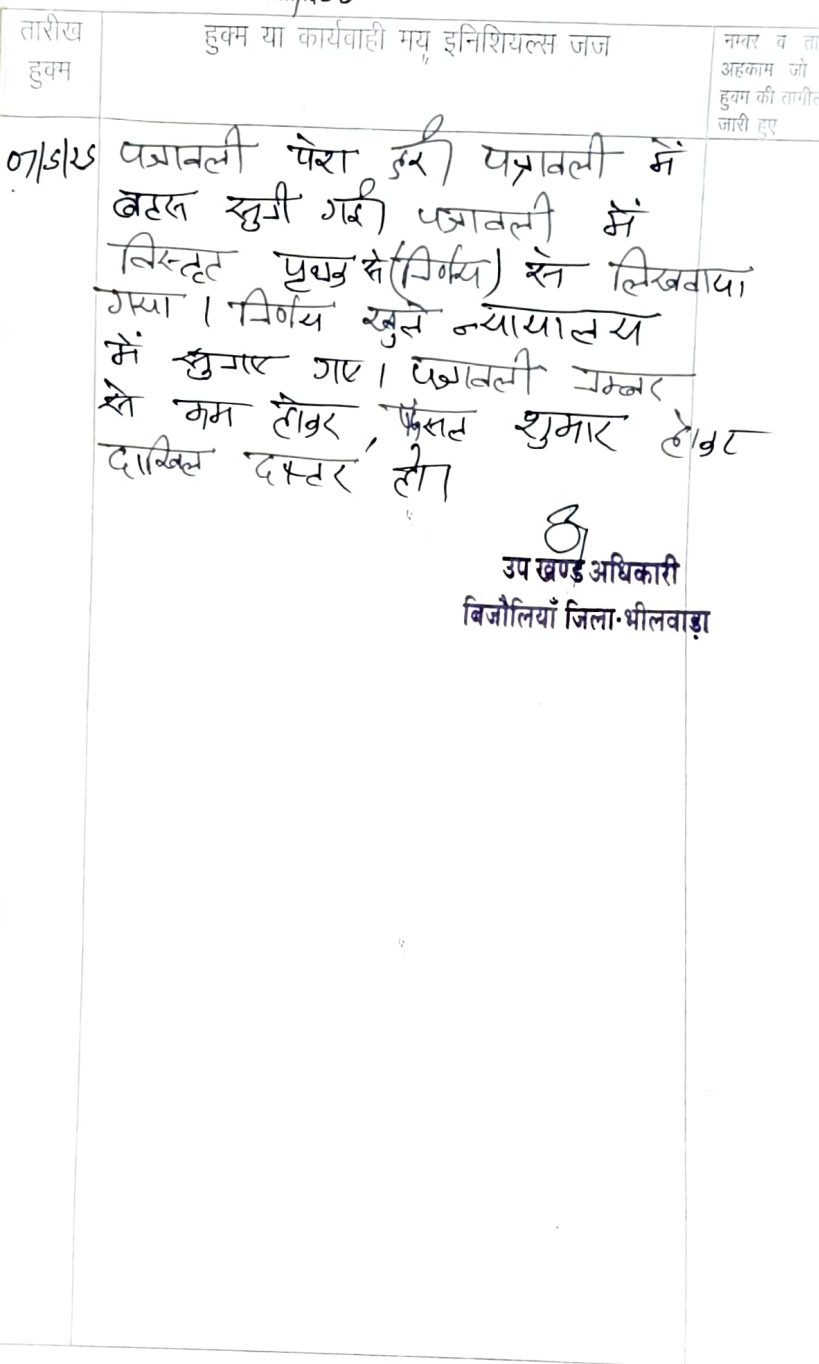 तारीख
हुक्म
हुक्म या कार्यवाही मय इनिशियल्स जज
नम्बर व ता
अहकाम जो
हुक्म की तामील
जारी हुए
07/5/25 पत्रावली पेश हुई। पत्रावली में
बहस सुनी गई। पत्रावली में
विस्तृत पृथक से (निर्णय) से लिखवाया
गया । निर्णय खुले न्यायालय
में सुनाए गए। पत्रावली नम्बर
से कम होकर, फैसल शुमार होकर
दाखिल दफ्तर हो।
उप खण्ड अधिकारी
बिजौलियाँ जिला-भीलवाड़ा